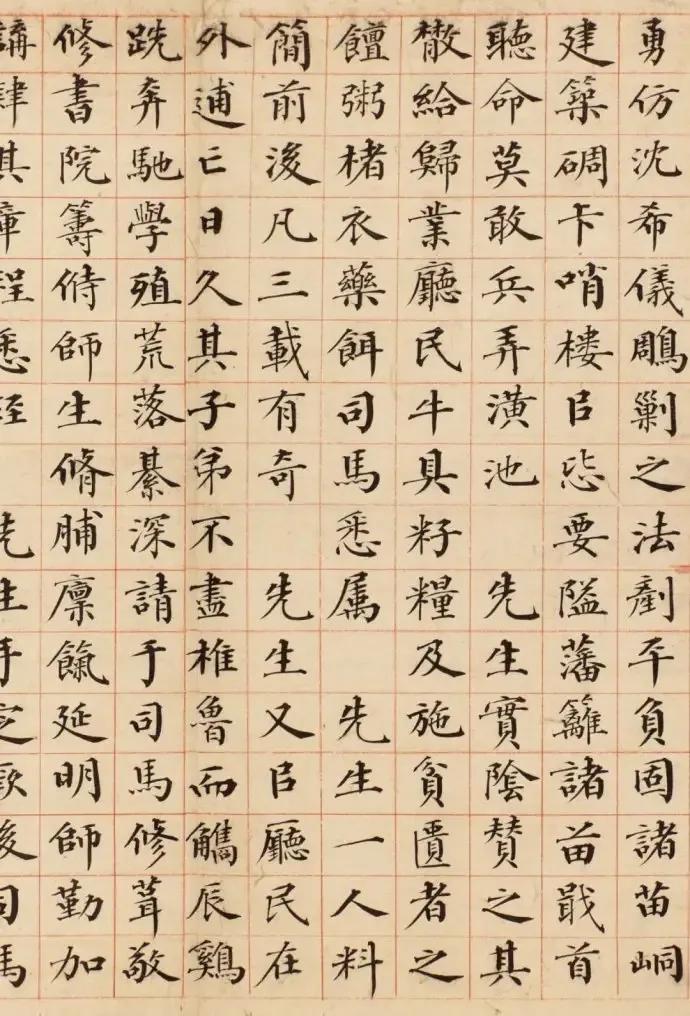 勇仿沈希儀鵰剿之法劃平負固諸苗峒
建築碉卡哨楼㠯怸要隘藩籬諸苗戢首
聽命莫敢兵弄潢池先生實陰賛之其
散給歸業廳民牛具籽糧及施貧匱者之
饘粥楮衣藥餌司馬悉属先生一人料
簡前後凡三載有奇先生又㠯廳民在
外逋亡日久其子弟不盡椎魯而觿辰鷄
跣奔馳學殖荒落綦深請于司馬修葺敬
修書院籌偫師生脩脯廪餼延明師勤加
講肄其章程悉經先生手定厥後司馬